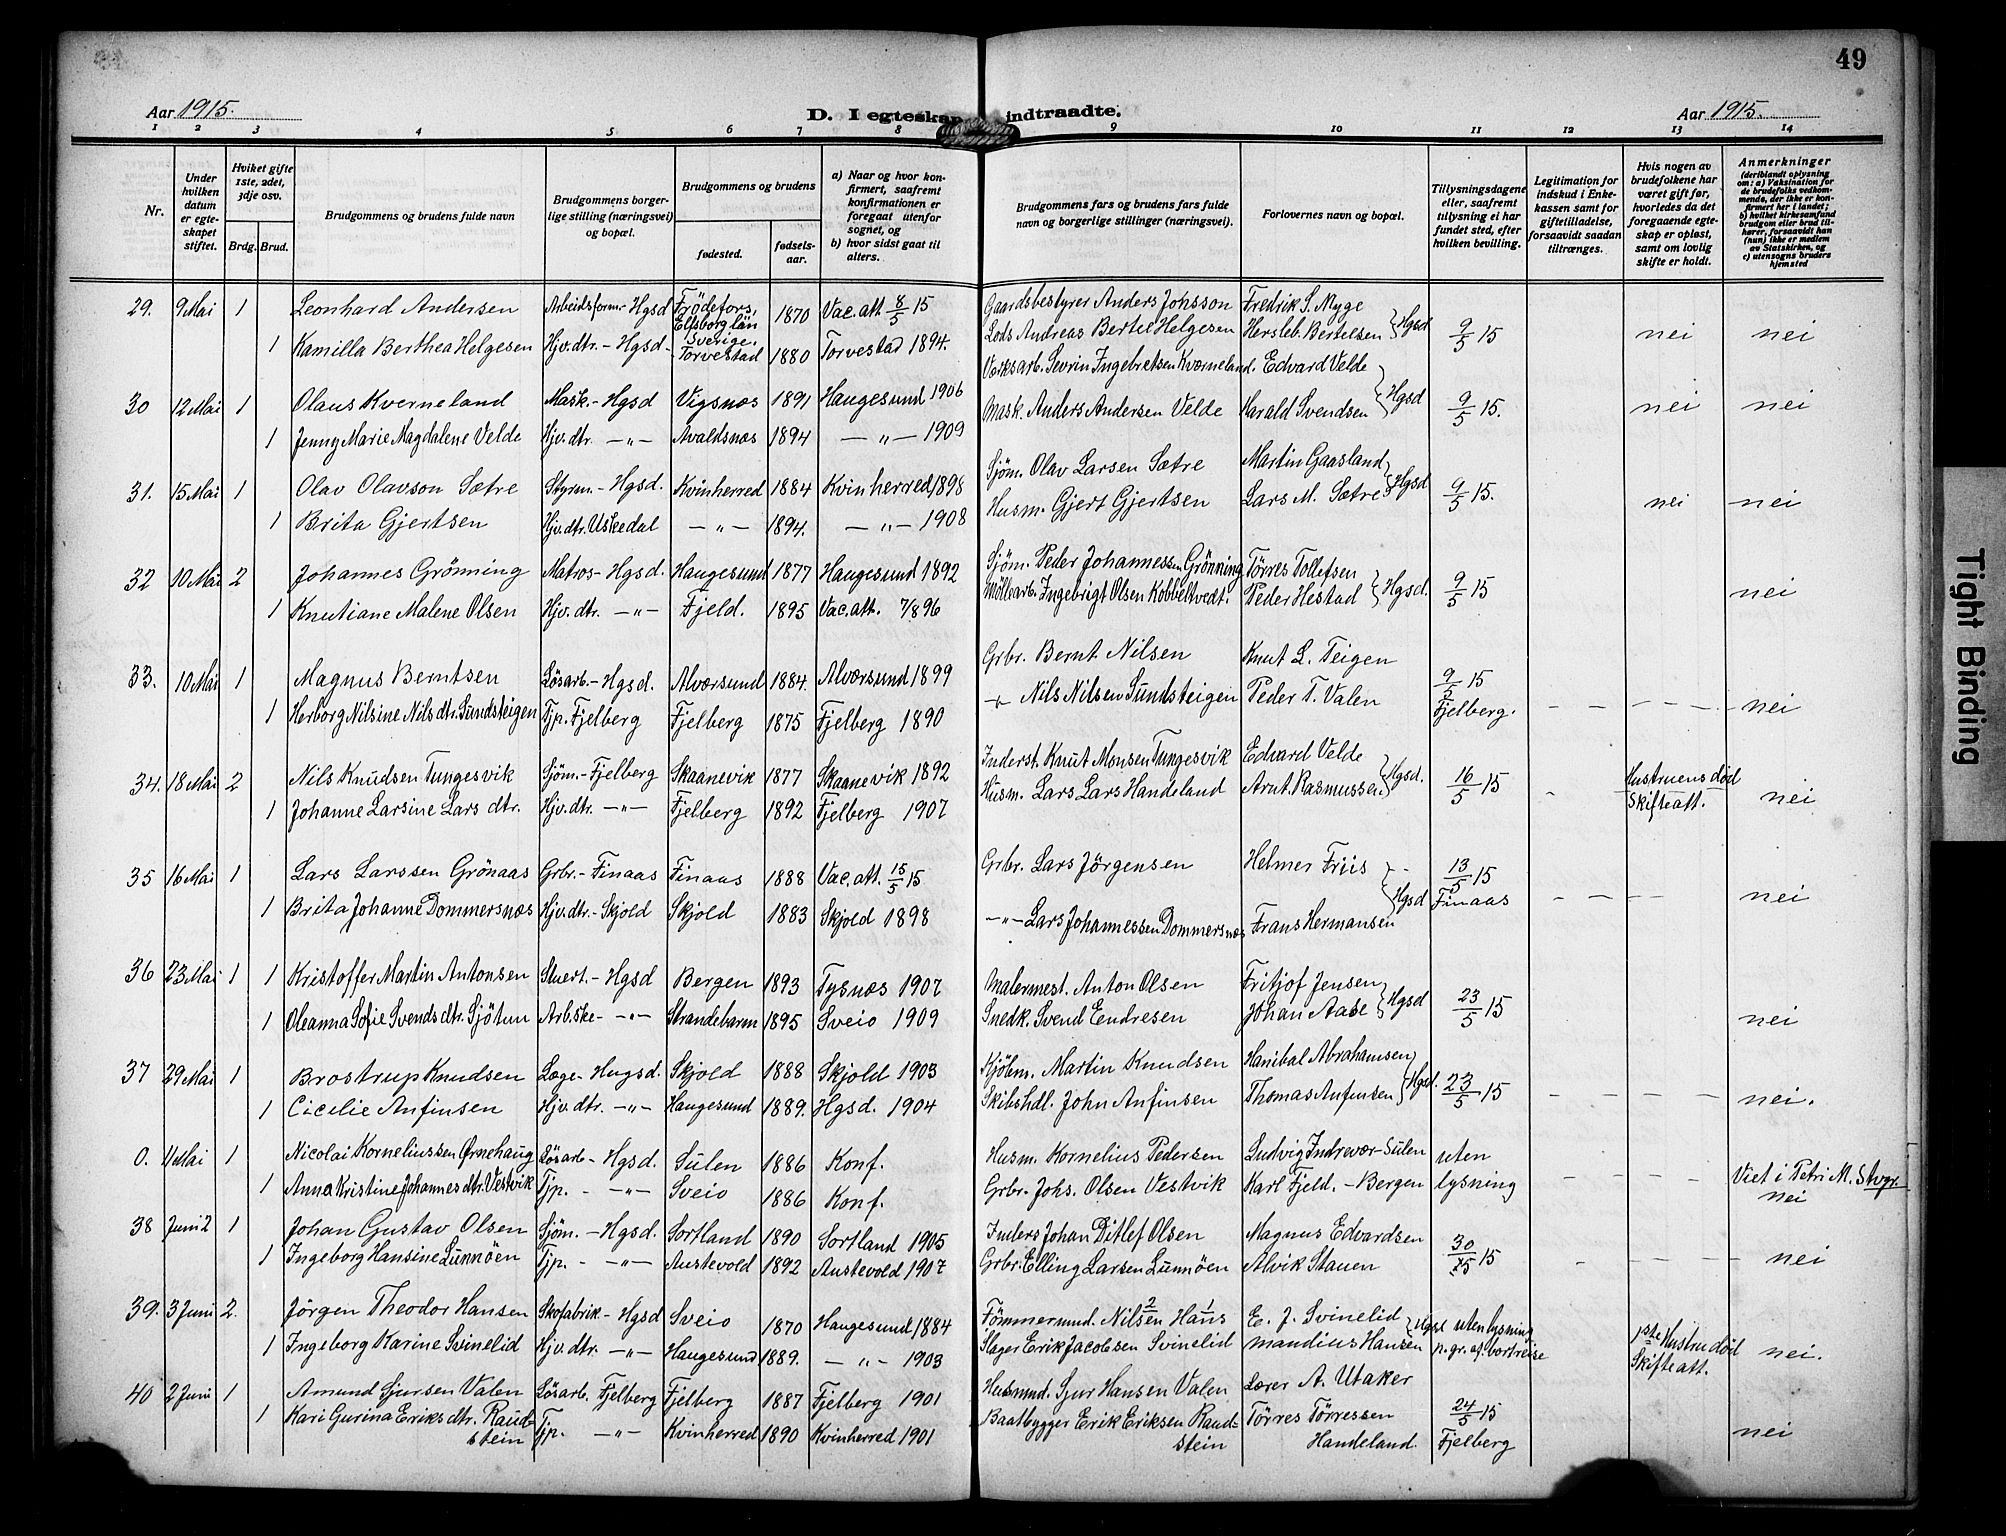 49
Aar 1915.
D. I egteskap indtraadte.
Aar 1915.
1 2 3 4 5 6 7 8 9 10 11 12 13 14
Nr.
Under hvilken datum er egteskapet stiftet.
Hviket gifte 1ste, 2det, 3dje osv.
Brdg. Brud.
Brudgommens og brudens fulde navn
Brudgommens borgerlige stilling (næringsvei) og bopæl.
Brudgommens og brudens
fødested.
fødselsaar.
a) Naar og hvor konfirmert, saafremt konfirmationen er foregaat utenfor sognet, og b) hvor sidst gaat til alters.
Brudgommens fars og brudens fars fulde navn og borgerlige stillinger (næringsvei).
Forlovernes navn og bopæl.
Tillysningsdagene eller, saafremt tillysning ei har fundet sted, efter hvilken bevilling.
Legitimation for indskud i Enkekassen samt for giftetilladelse, forsaavidt saadan tiltrænges.
Hvis nogen av brudefolkene har været gift før, hvorledes da det foregaaende egteskap er opløst, samt om lovlig skifte er holdt.
Anmerkninger (deriblandt oplysning om: a) Vaksination for de brudefolks vedkommende, der ikke er konfirmert her i landet; b) hvilket kirkesamfund brudgom eller brud tilhører, forsaavidt han (hun) ikke er medlem av Statskirken, og c) utensogns bruders hjemsted
29. 9 Mai 1 Leonhard Andersen Arbeidsform.- Hgsd Frödefors, Elfsborg län Sverige. 1870 Vac. att. 8/5 15 Gaardsbestyrer Anders Johsson Fredrik S. Myge
1 Kamilla Berthea Helgesen Hjv. dtr. - Hgsd - Torvestad 1880 Torvestad 1894. Lods Andreas Bertel Helgesen Hersleb. Bertelsen } Hgsd 9/5 15 nei nei
30 12 Mai 1 Olaus Kverneland Mask.- Hgsd Vigsnæs 1891 Haugesund 1906 Værksarb. Sevrin Ingebretsen Kværneland. Edvard Velde
1 Jenny Marie Magdalene Velde Hjv. dtr. -"- Avaldsnæs 1894 -"- 1909 Mask. Anders Andersen Velde Harald Svendsen } Hgsd 9/5 15. nei nei
31. 15 Mai 1 Olav Olavson Sætre Styrm.- Hgsd. Kvinherred 1884 Kvinherred 1898 Sjöm. Olav Larsen Sætre Martin Gaasland
1 Brita Gjertsen Hjv. dtr. Uskedal -"- 1894. -"- 1908 Husm. Gjert Gjertsen Lars M. Sætre } Hgsd 9/5 15. nei nei
32 10 Mai 2 Johannes Grönning Matros- Hgsd. Haugesund 1877 Haugesund 1892 Sjöm. Peder Johannessen Grönning Törres Tollefsen
1 Knutiane Malene Olsen Hjv. dtr. -"- Fjeld. 1895 Vac. att. 7/8 96 Möllearb. Ingebrigt Olsen Kobbeltvedt. Peder Hestad } Hgsd. 9/5 15 nei
33. 10 Mai 1 Magnus Berntsen Lösarb.- Hgsd. Alværsund 1884. Alværsund 1899 Grbr. Bernt Nilsen Knut L. Teigen
1 Herborg Nilsine Nils dtr. Sundsteigen Tjp. Fjelberg Fjelberg 1875 Fjelberg 1890 -"- Nils Nilsen Sundsteigen Peder T. Valen 9/5 15 Fjelberg. - - - - - nei
34. 18 Mai 2 Nils Knudsen Tungesvik Sjöm.- Fjelberg Skaanevik 1877 Skaanevik 1892 Inderst. Knut Monsen Tungesvik Edvard Velde
1 Johanne Larsine Lars dtr. Hjv. dtr. -"- Fjelberg 1892 Fjelberg 1907 Husm. Lars Lars Handeland Arnt. Rasmussen } Hgsd. 16/5 15 - Hustruens död Skifteatt. nei
35 16 Mai 1 Lars Larssen Grönaas Grbr.- Finaas Finaas 1888 Vac. att. 15/5 15 Grbr. Lars Jörgensen Helmer Friis
1 Brita Johanne Dommersnæs Hjv. dtr.- Skjold Skjold 1883 Skjold 1898 -"- Lars Johannessen Dommersnæs Frans Hermansen } Hgsd 13/5 15 Finaas - - - - nei
36 23 Mai 1 1 Kristoffer Martin Antonsen Stuert.- Hgsd Bergen 1893 Tysnæs 1907 Malermest. Anton Olsen Fritjof Jensen
1 Oleanna Sofie Svends dtr. Sjötun Arb.ske- -"- Strandebarm 1895 Sveio 1909 Snedk. Svend Endresen Johan Aase } Hgsd 23/5 15 nei
37 29 Mai 1 Brostrup Knudsen Læge- Hugsd. Skjold 1888 Skjold 1903 Kjöbm. Martin Knudsen Hanibal Abrahamsen
1 Cicilie Anfinsen Hjv. dtr. -"- Haugesund 1889. Hgsd. 1904 Skibshdl. John Anfinsen Thomas Anfinsen } Hgsd. 23/5 15 - - - - nei.
0. 11 Mai 1 Nicolai Korneliussen Ørnehaug Lösarb- Hgsd. Sulen 1886 Konf. Husm. Kornelius Pedersen Ludvig Indrevær- Sulen uten
1 Anna Kristine Johannes dtr. Vestvik Tjp. - -"- Sveio 1886 Konf. Grbr. Johs. Olsen Vestvik Karl Fjeld. - Bergen lysning - - - Viet i Petri M. Stvgr. nei
38 Juni 2 1 Johan Gustav Olsen Sjöm. - Hgsd. Sortland 1890 Sortland 1905 Inders Johan Ditlef Olsen Magnus Edvardsen
1 Ingeborg Hansine Lunnöen Tjp. - -"- Austevold 1892 Austevold 1907 Grbr. Elling Larsen Lunnöen Alvik Stauen 30/5 15 - - - - nei
39. 3 Juni 2. Jörgen Theodor Hansen Skofabrik- Hgsd Sveio 1870 Haugesund 1884 Tömmermd. Nilsen 2 Hans 1 E. J. Svinelid
1 Ingeborg Karine Svinelid Hjv. dtr. -"- Haugesund 1889. -"- 1903 Slager Erik Jacobsen Svinelid mandius Hansen } Hgsd uten lysning p. gr. af. bortreise 1ste Hustru död Skifteatt. nei.
40 2 Juni 1 Amund Sjursen Valen Lösarb. Fjelberg Fjelberg 1887 Fjelberg 1901 Husmnd. Sjur Hansen Valen Lærer A. Utaker
1 Kari Gurina Eriks dtr. Raudstein Tjp. -"- Kvinherred 1890 Kvinherred 1901 Baatbygger Erik Eriksen Raudstein Törres Törressen Handeland. 24/5 15 Fjelberg nei
Tight Binding